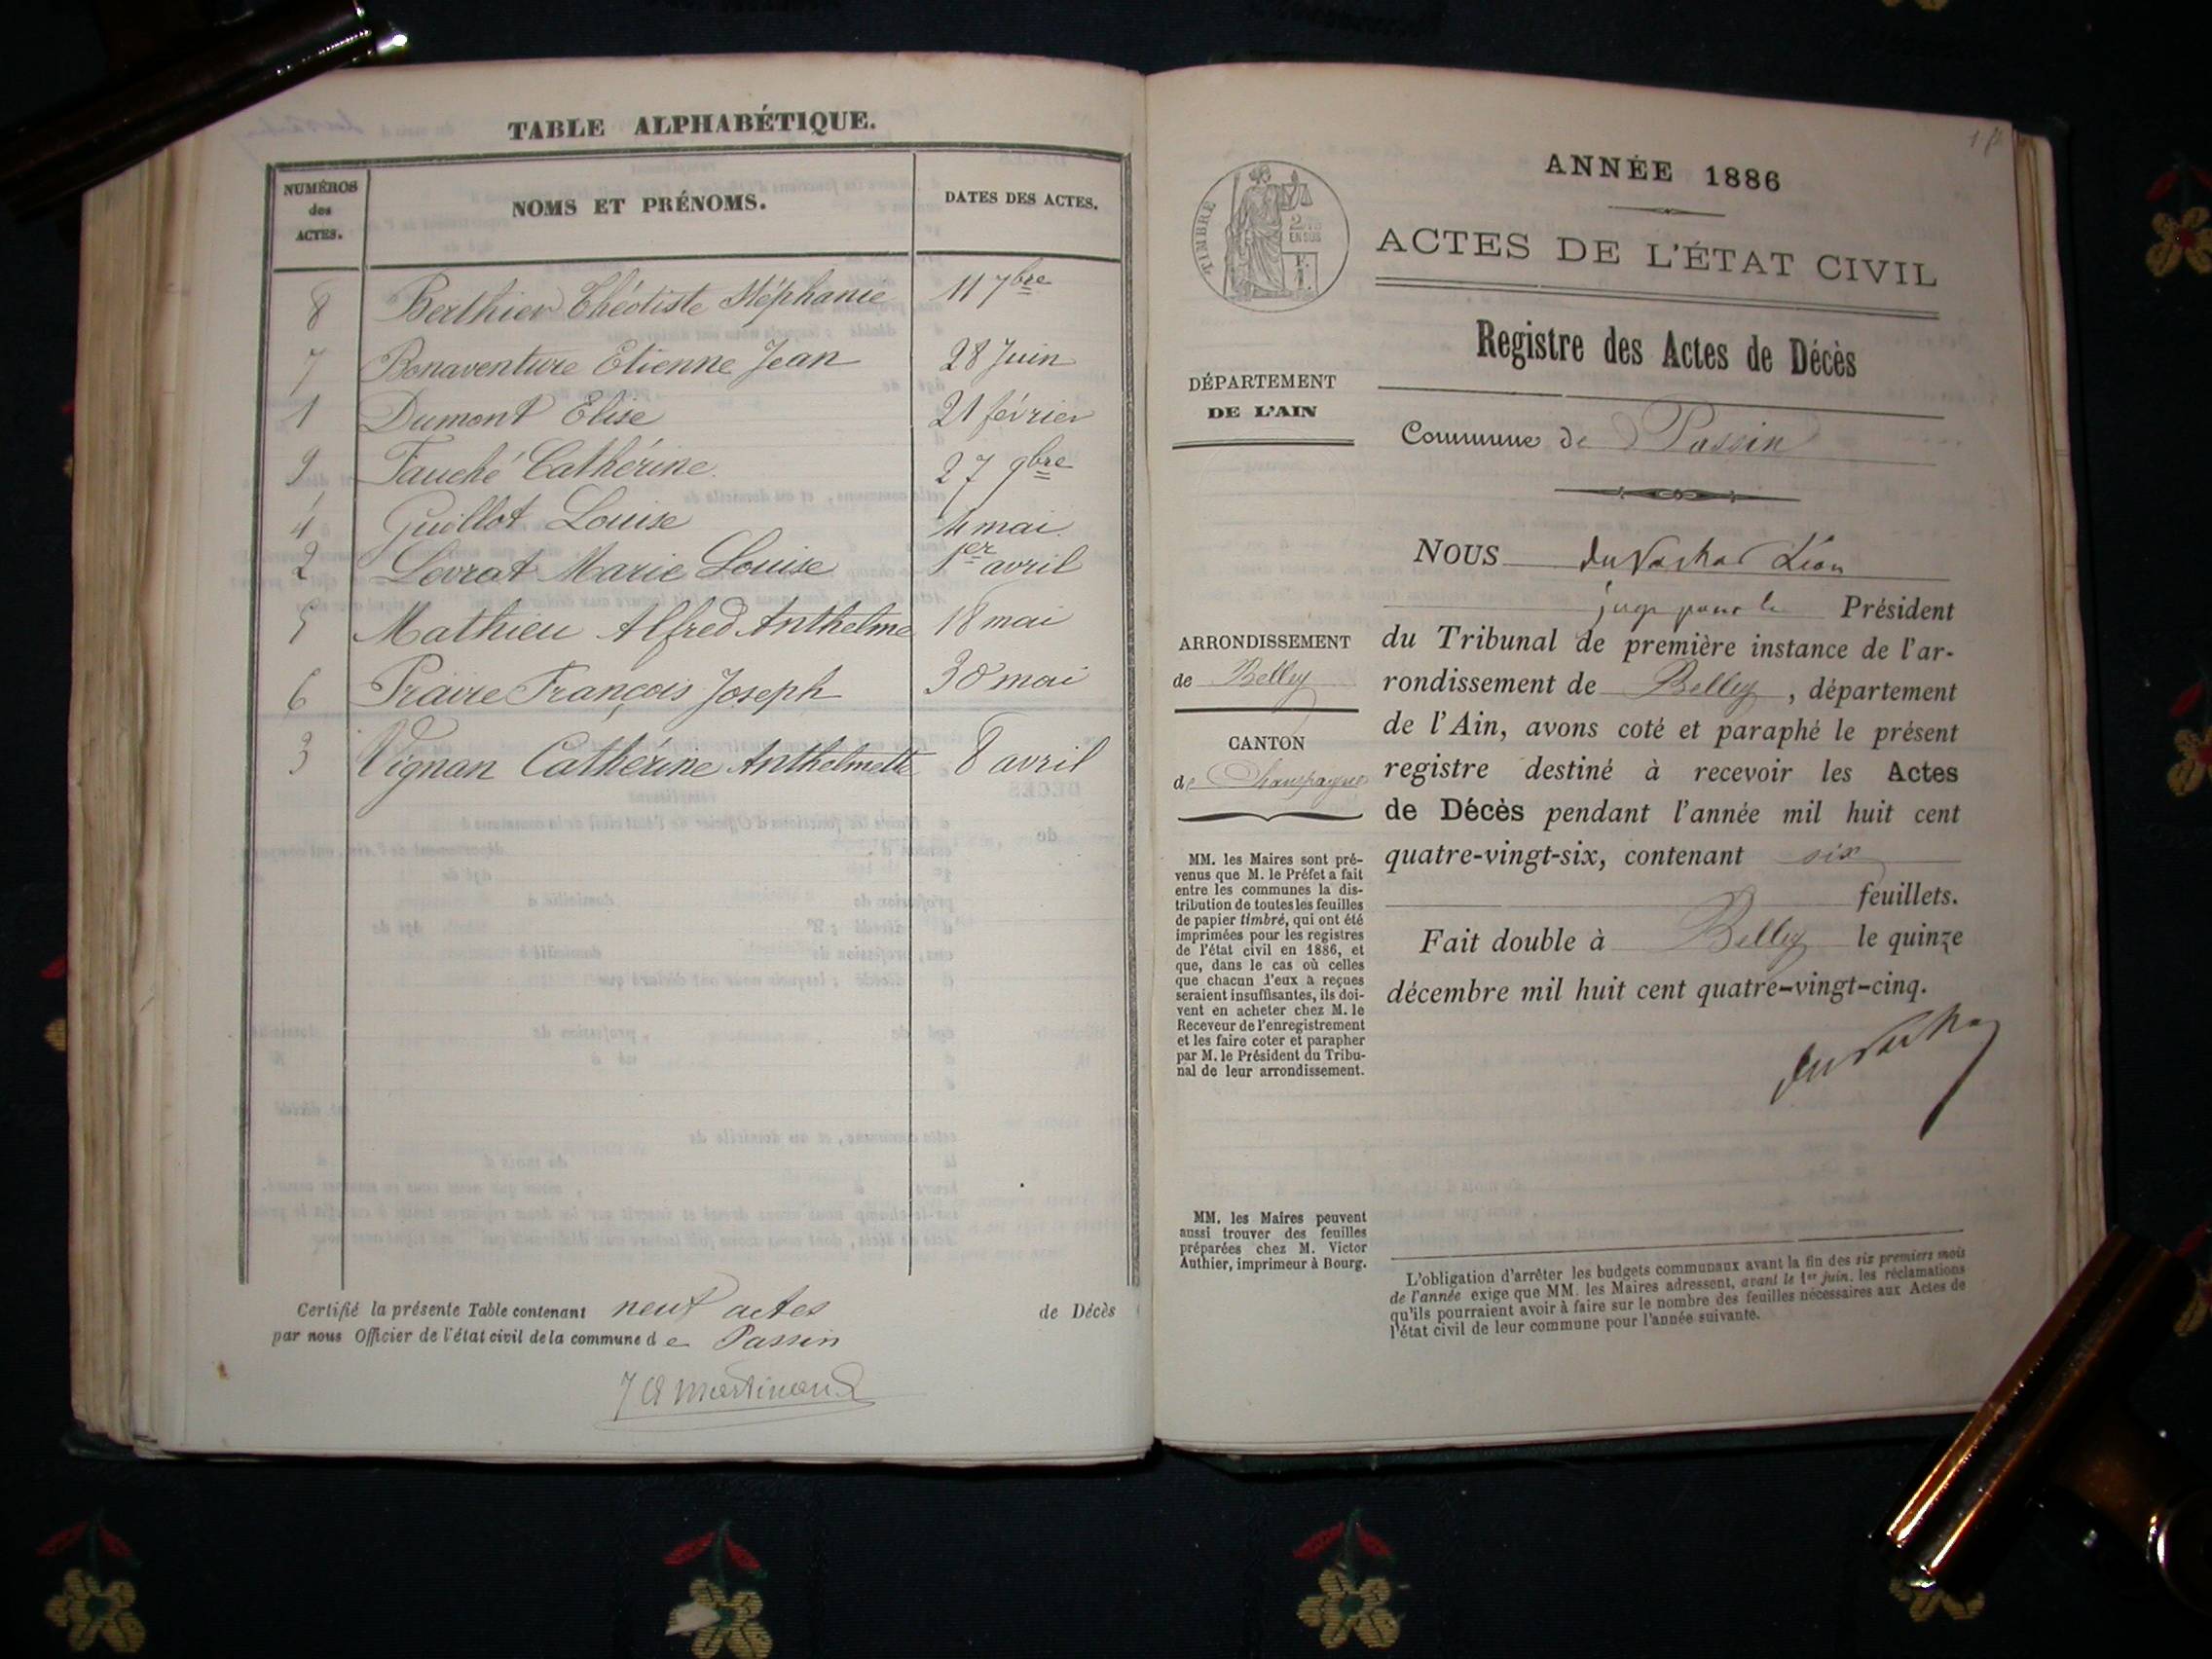 TABLE ALPHABÉTIQUE.
NUMÉROS des ACTES. NOMS ET PRÉNOMS. DATES DES ACTES.
8 Berthier Théotiste Stéphanie 11 7bre
7 Bonaventure Etienne Jean 28 Juin
1 Dumont Elise 21 février
9 Fauché Cathérine 27 9bre
4 Guillot Louise 4 mai
2 Levrat Marie Louise 1er avril
5 Mathieu Alfred Anthelme 18 mai
6 Praire François Joseph 30 mai
3 Vignan Catherine Anthelmette 8 avril
Certifié la présente Table contenant neuf actes de Décès
par nous Officier de l'état civil de la commune de Passin
J A Martinand
ANNÉE 1886
TIMBRE
2/10
EN SUS
ACTES DE L'ÉTAT CIVIL
Registre des Actes de Décès
DÉPARTEMENT
DE L'AIN
Commune de Passin
NOUS Léon
juge pour le Président
du Tribunal de première instance de l'ar-
rondissement de Belley, département
de l'Ain, avons coté et paraphé le présent
registre destiné à recevoir les Actes
de Décès pendant l'année mil huit cent
quatre-vingt-six, contenant six
feuillets.
Fait double à Belley le quinze
décembre mil huit cent quatre-vingt-cinq.
ARRONDISSEMENT
de Belley
CANTON
de Champagne
MM. les Maires sont pré-
venus que M. le Préfet a fait
entre les communes la dis-
tribution de toutes les feuilles
de papier timbré, qui ont été
imprimées pour les registres
de l'état civil en 1886, et
que, dans le cas où celles
que chacun d'eux a reçues
seraient insuffisantes, ils doi-
vent en acheter chez M. le
Receveur de l'enregistrement
et les faire coter et parapher
par M. le Président du Tribu-
nal de leur arrondissement.
MM. les Maires peuvent
aussi trouver des feuilles
préparées chez M. Victor
Authier, imprimeur à Bourg.
L'obligation d'arrêter les budgets communaux avant la fin des six premiers mois
de l'année exige que MM. les Maires adressent, avant le 1er juin, les réclamations
qu'ils pourraient avoir à faire sur le nombre des feuilles nécessaires aux Actes de
l'état civil de leur commune pour l'année suivante.